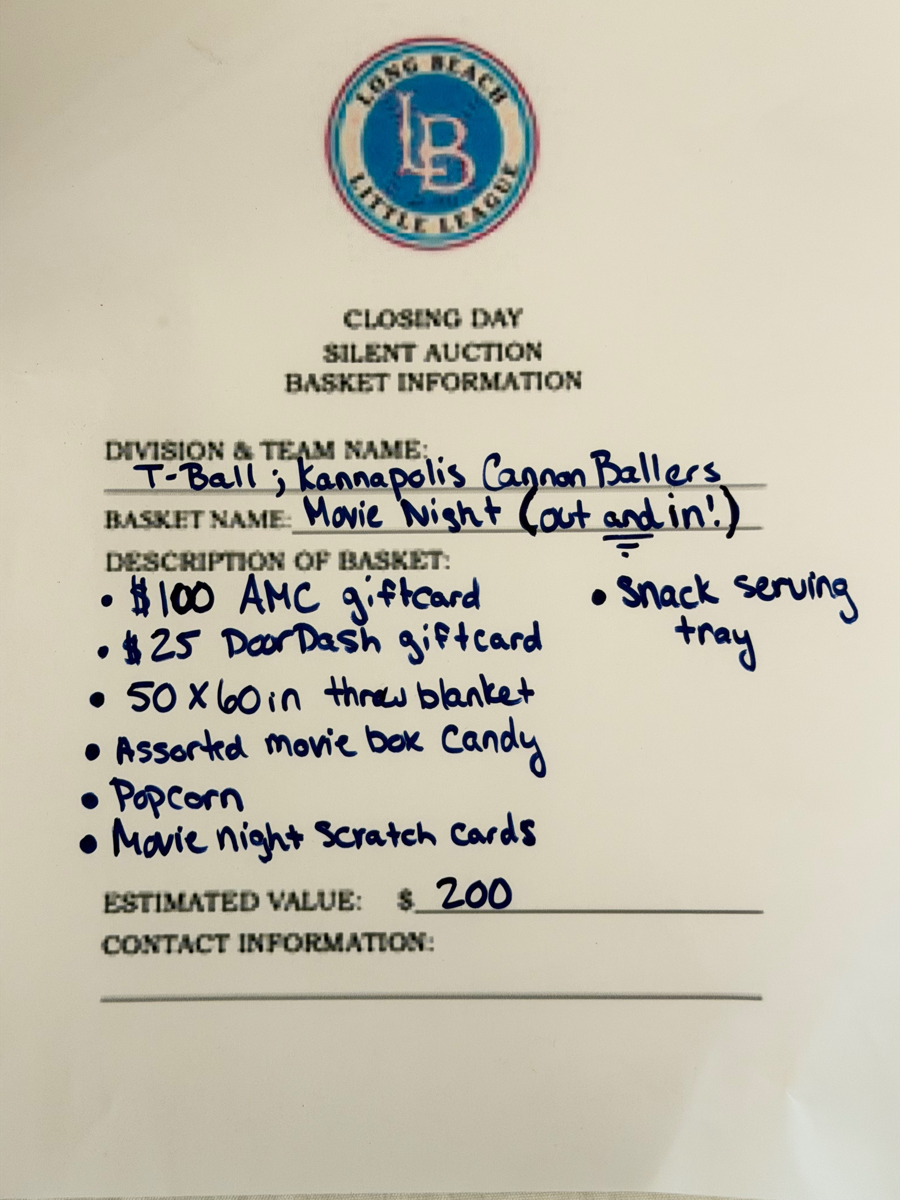 LONG BEACH
LB
LITTLE LEAGUE
CLOSING DAY
SILENT AUCTION
BASKET INFORMATION
DIVISION & TEAM NAME:
T-Ball ; Kannapolis Cannon Ballers
BASKET NAME: Movie Night (out and in!)
DESCRIPTION OF BASKET:
• $100 AMC giftcard
• $25 DoorDash giftcard
• 50 X 60in throw blanket
• Assorted movie box Candy
• Popcorn
• Movie night Scratch Cards
• Snack serving
tray
ESTIMATED VALUE: $ 200
CONTACT INFORMATION: